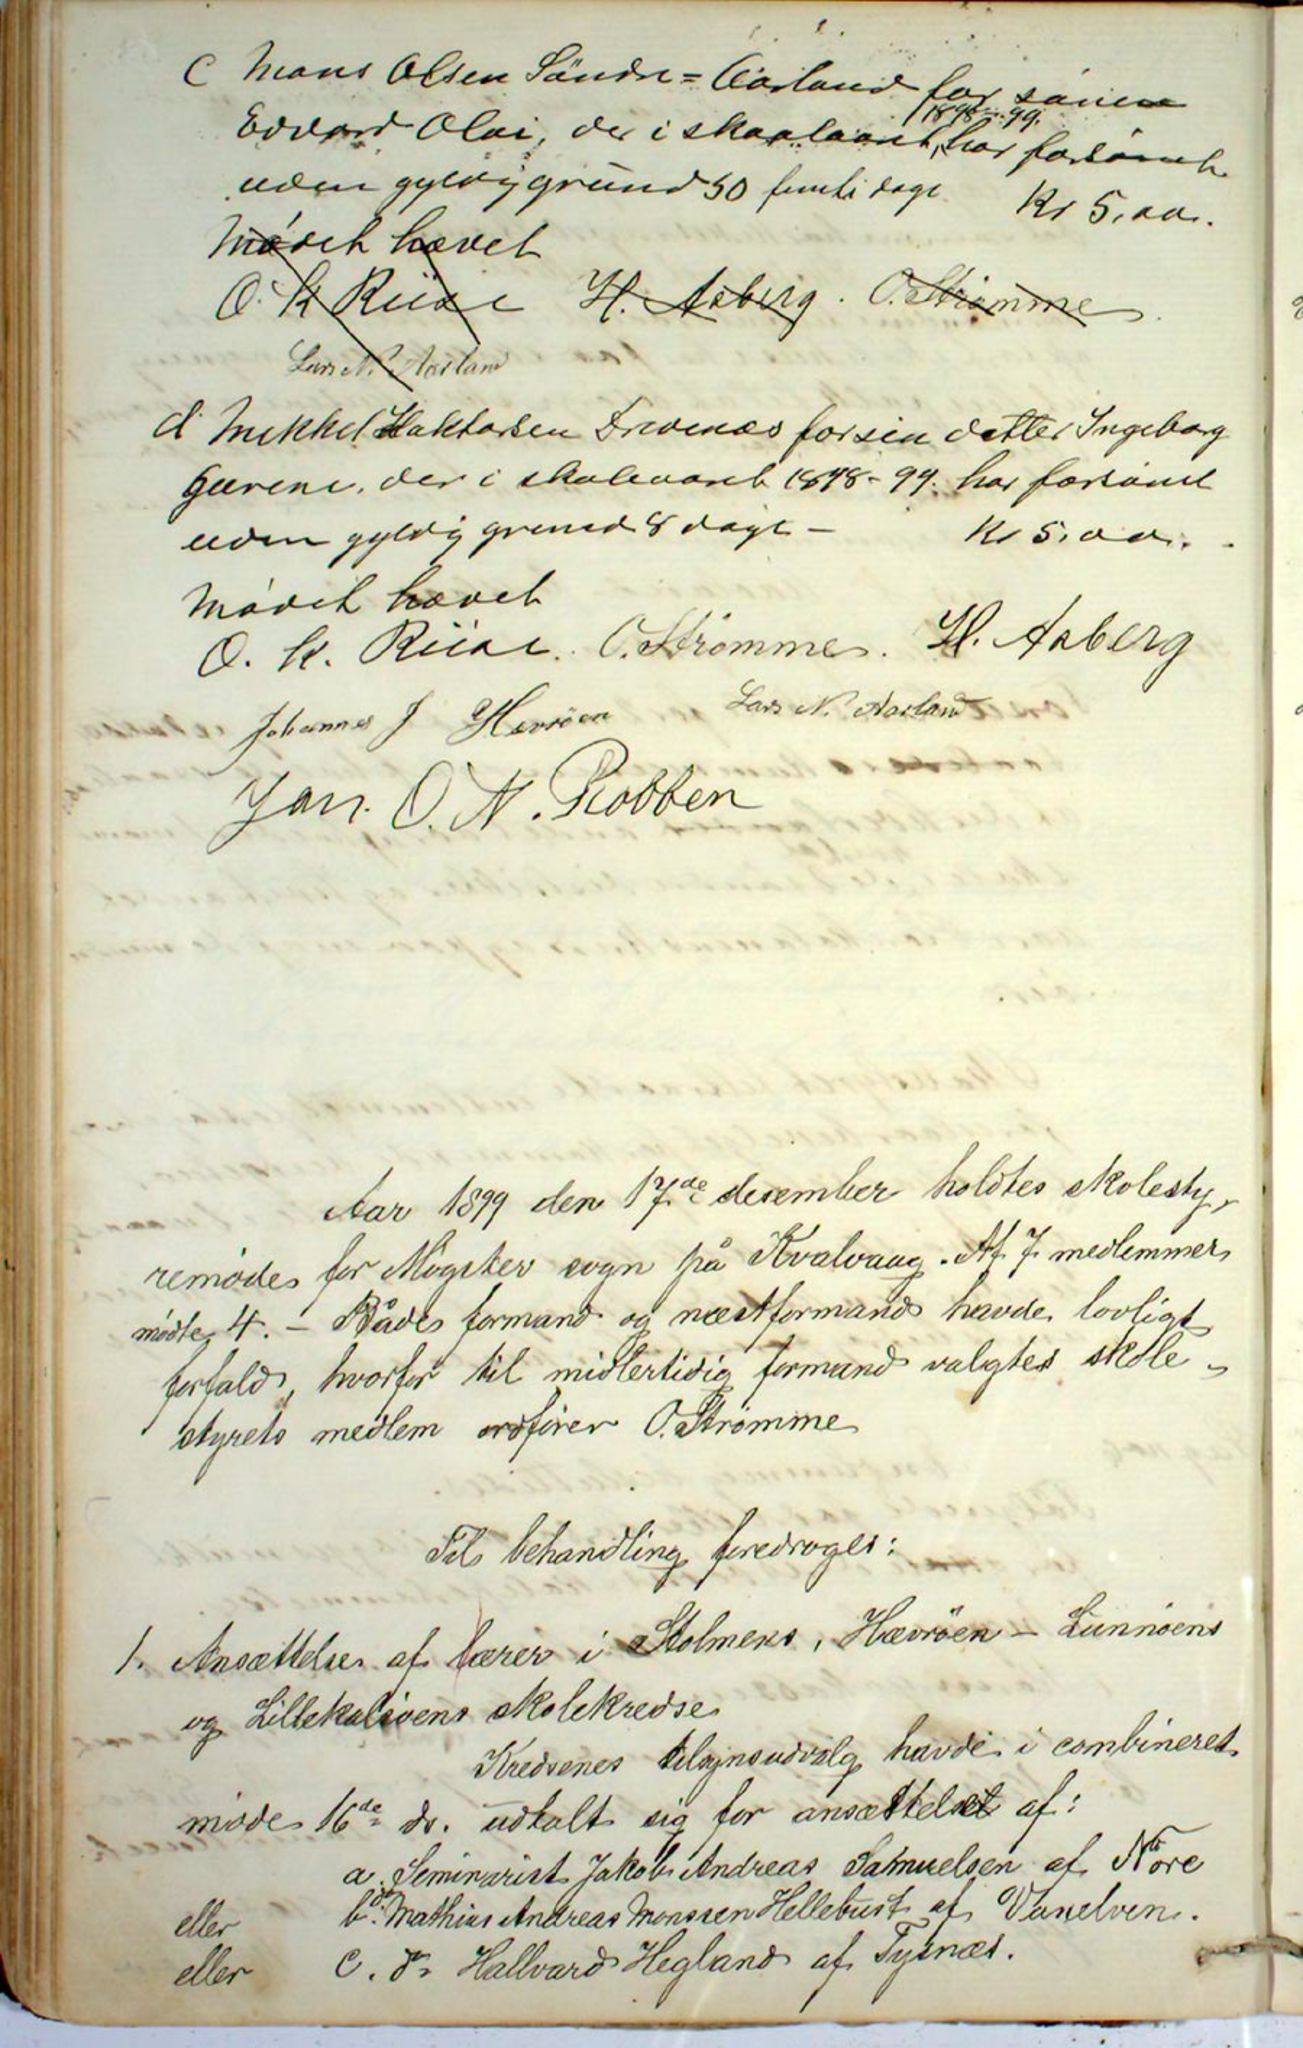 c Mons Olsen Søndre = Aarland for sønen
Edvard Olai, der i skoleaaret 1898-99. har forsømt
uden gyldig grund 50 femti dage Kr 5,00.
Mødet hævet
O. K Riise H. Aaberg. O. Strømme
Lars N. Aarland
d Mikkel Haktorsen Drevenæs for sin datter Ingeborg
Gurene, der i skoleaaret 1898-99. har forsømt
uden gyldig grund 8 dage – Kr 5,00.
Mødet hævet
O. K. Riise. O. Strømme. H. Aaberg
Johannes J Hevrøen Lars N. Aarland
Jan. O. N. Robben
Aar 1899 den 17de desember holdtes skolesty-
remøde for Møgster sogn på Kvalvaag. Af 7 medlemmer
mødte 4. – Både formand og næstformand havde lovligt
forfald, hvorfor til midlertidig formand valgtes skole-
styrets medlem ordfører O. Strømme
Til behandling foredroges:
1. Ansættelse af lærer i Stolmens, Hævrøen – Lunnøens
og Lillekalsøens skolekredse
Kredsenes tilsynsudvalg havde i combineret
møde 16de ds. udtalt sig for ansættelse af:
a. Seminarist Jakob Andreas Samuelsen af Nore
eller b. do Mathias Andreas Monssen Hellebust af Vanelven.
eller c. do Hallvard Hegland af Tysnæs.